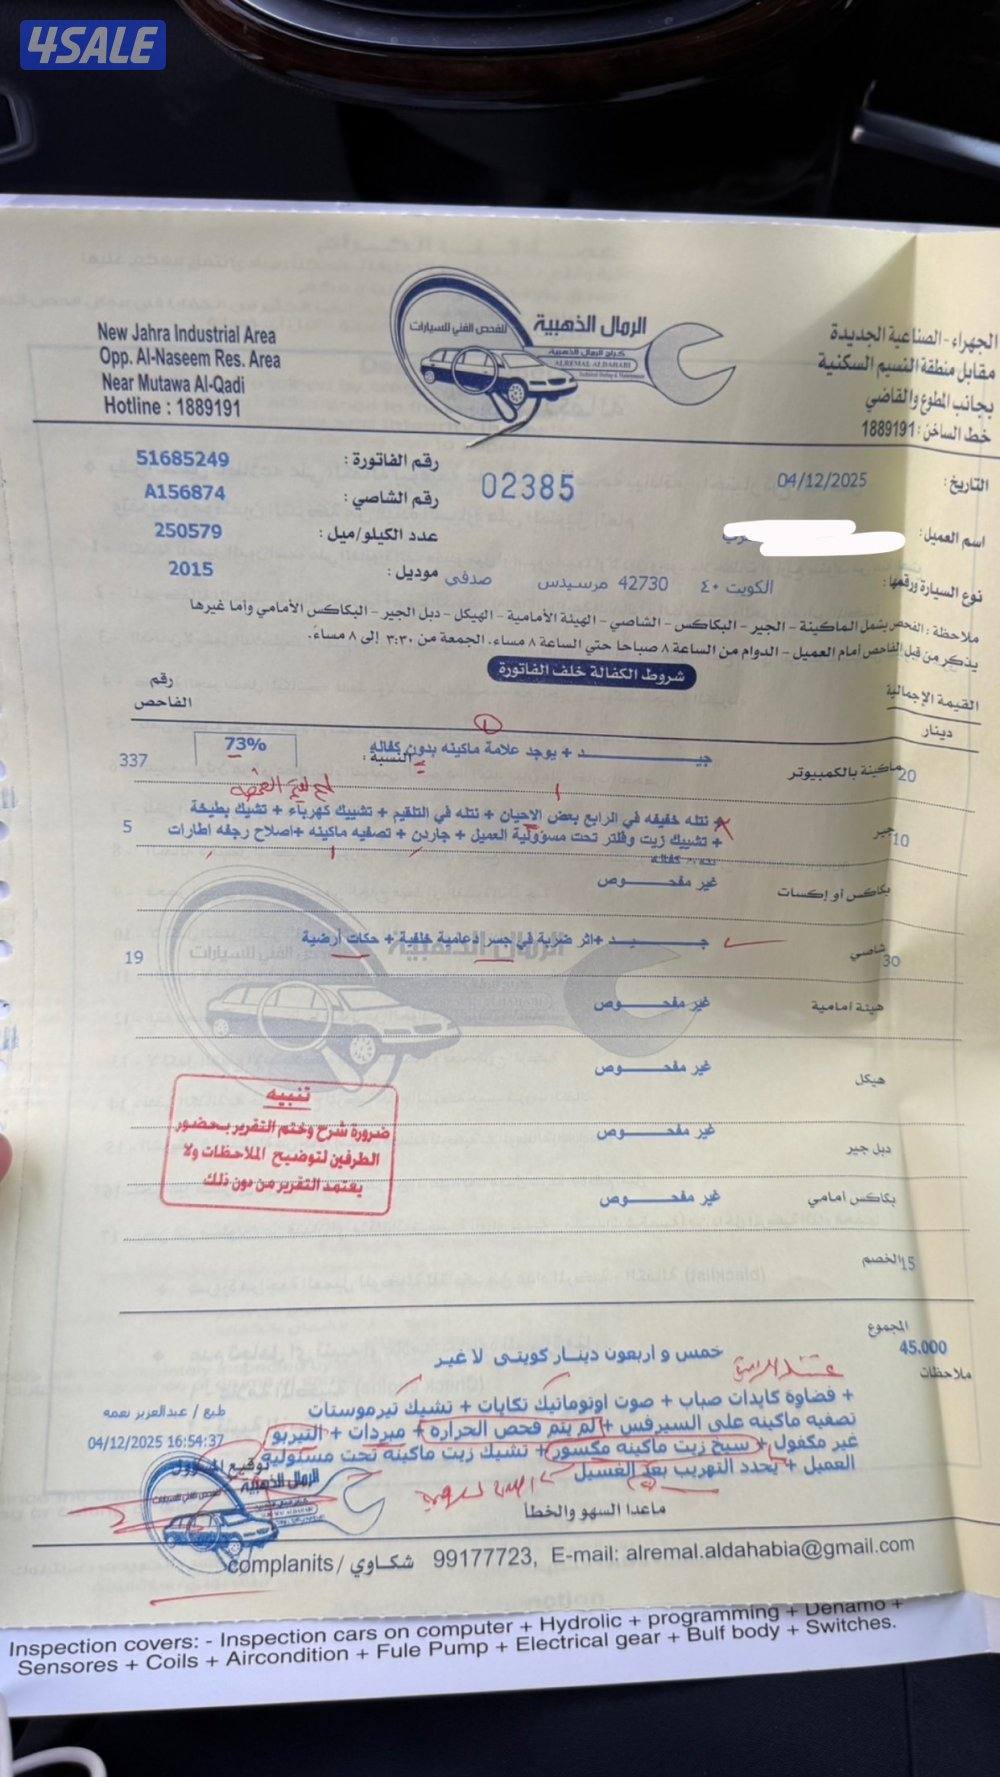 4SALE
New Jahra Industrial Area
Opp. Al-Naseem Res. Area
Near Mutawa Al-Qadi
Hotline : 1889191
الرمال الذهبية
للفحص الفني للسيارات
كراج الرمال الذهبية
ALREMAL ALDAHABI
الجهراء - الصناعية الجديدة
مقابل منطقة النسيم السكنية
بجانب المطوع والقاضي
خط الساخن : 1889191
التاريخ : 04/12/2025
02385
رقم الفاتورة : 51685249
رقم الشاصي : A156874
اسم العميل :
عدد الكيلو/ميل : 250579
نوع السيارة ورقمها : الكويت ٤٠ 42730 مرسيدس صدفي
موديل : 2015
ملاحظة : الفحص يشمل الماكينة - الجير - البكاكس - الشاصي - الهيئة الأمامية - الهيكل - دبل الجير - البكاكس الأمامي وأما غيرها
يذكر من قبل الفاحص أمام العميل - الدوام من الساعة ٨ صباحا حتي الساعة ٨ مساء. الجمعة من ٣:٣٠ إلى ٨ مساءً.
شروط الكفالة خلف الفاتورة
القيمة الإجمالية
دينار
رقم الفاحص
20 ماكينة بالكمبيوتر جيـــــــد + يوجد علامة ماكينه بدون كفاله
النسبة : 73% 337
10 جير + نتله خفيفه في الرابع بعض الاحيان + نتله في التلقيم + تشييك كهرباء + تشيك بطيخة
+ تشييك زيت وفلتر تحت مسؤولية العميل + جاردن + تصفيه ماكينه +اصلاح رجفه اطارات 5
بدون كفاله
بكاكس أو إكسات غير مفحـــــوص
30 شاصي جـــــــيد +اثر ضربة في جسر دعامية خلفية + حكات أرضية 19
هيئة امامية غير مفحـــــوص
هيكل غير مفحـــــوص
دبل جير غير مفحـــــوص
بكاكس أمامي غير مفحـــــوص
تنبيه
ضرورة شرح وختم التقرير بحضور
الطرفين لتوضيح الملاحظات ولا
يعتمد التقرير من دون ذلك
15 الخصم
المجموع
45.000 خمس و اربعون دينار كويتى لا غير
ملاحظات
+ فضاوة كايدات صباب + صوت اوتوماتيك تكايات + تشيك تيرموستات
تصفيه ماكينه على السيرفس + لم يتم فحص الحرارة + مبردات + التيربو
غير مكفول + سيخ زيت ماكينه مكسور + تشيك زيت ماكينه تحت مسئولية
العميل + يحدد التهريب بعد الغسيل
ماعدا السهو والخطأ
طبع / عبدالعزيز نعمه
04/12/2025 16:54:37
توقيع المسؤول
الرمال الذهبية
complanits / شكاوي 99177723, E-mail: alremal.aldahabia@gmail.com
Inspection covers: - Inspection cars on computer + Hydrolic + programming + Denamo +
Sensores + Coils + Aircondition + Fule Pump + Electrical gear + Bulf body + Switches.